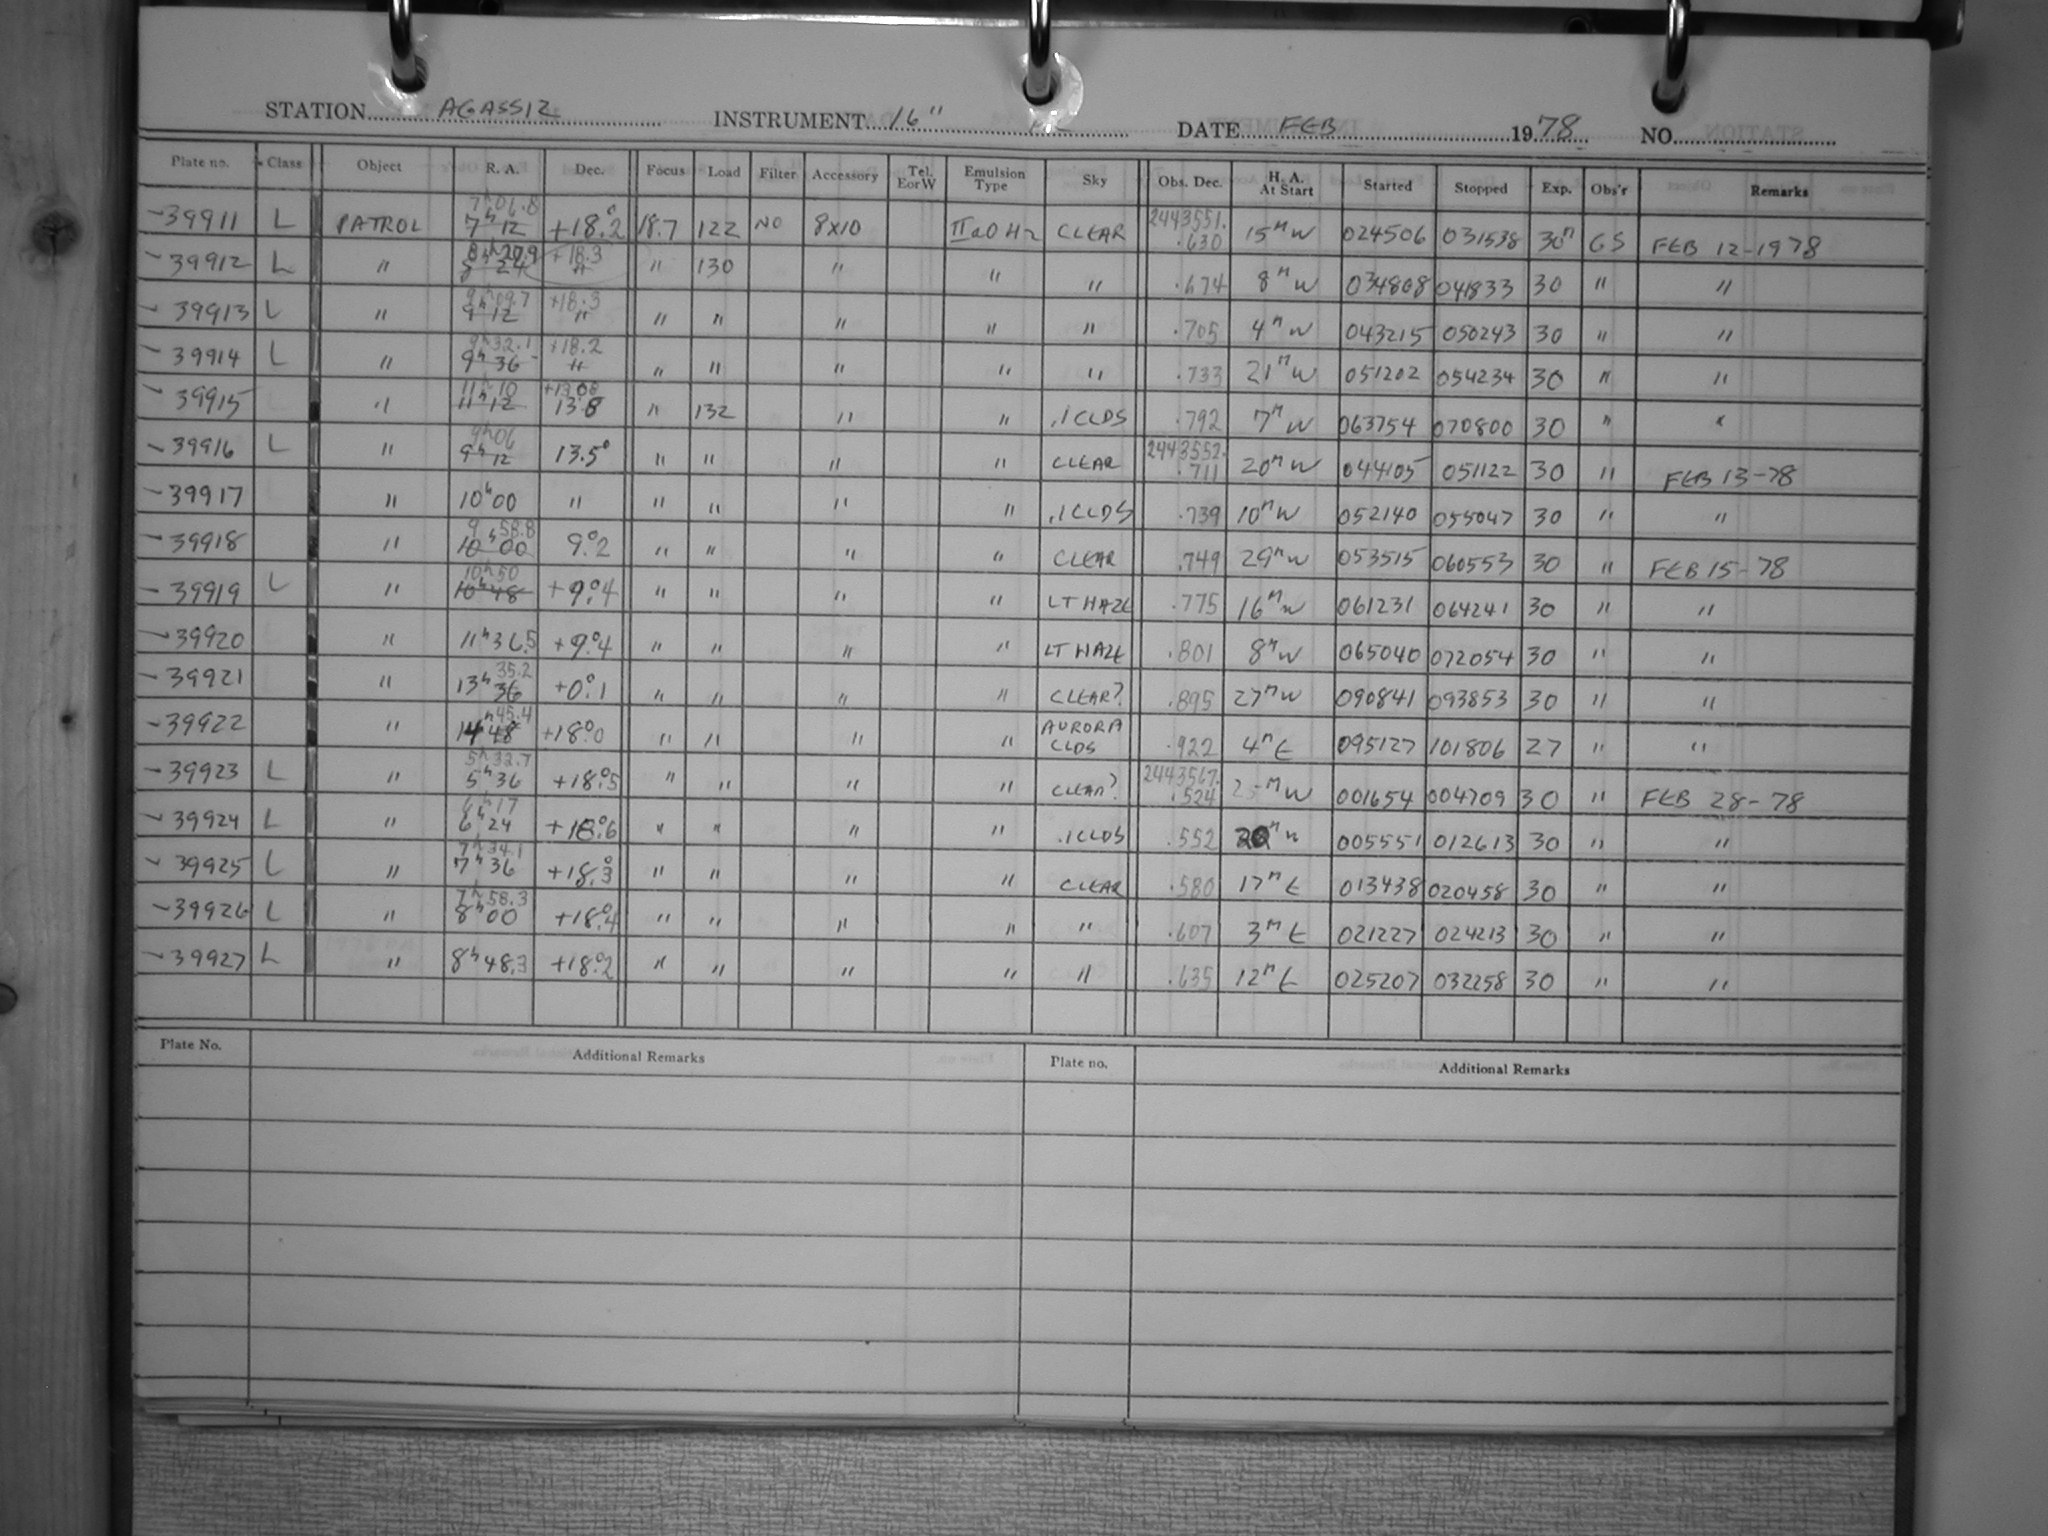 STATION AGASSIZ INSTRUMENT 16" DATE FEB 1978 NO.
Plate no. Class Object R. A. Dec. Focus Load Filter Accessory Tel. E or W Emulsion Type Sky Obs. Dec. H. A. At Start Started Stopped Exp. Obs'r Remarks
7h06.8 2443551.
-39911 L PATROL 7h12 +18.°2 18.7 122 NO 8x10 IIaO H2 CLEAR .630 15m W 024506 031538 30m GS FEB 12-1978
8h20.9 +18.3
-39912 L " 8h24 " " 130 " " " .674 8m W 034808 041833 30 " "
9h09.7 +18.3
-39913 L " 9h12 " " " " " " .705 4m W 043215 050243 30 " "
9h32.1 +18.2
-39914 L " 9h36 " " " " " " .733 21m W 051202 054234 30 " "
11h10 +13.08
-39915 " 11h12 13.8 " 132 " " .1 CLDS .792 7m W 063754 070800 30 " "
9h06 2443552.
-39916 L " 9h12 13.5° " " " " CLEAR .711 20m W 044105 051122 30 " FEB 13-78
-39917 " 10h00 " " " " " .1 CLDS .739 10m W 052140 055047 30 " "
9h58.8
-39918 " 10h00 9.°2 " " " " CLEAR .749 29m W 053515 060553 30 " FEB 15-78
10h50
-39919 L " 10h48 +9.°4 " " " " LT HAZE .775 16m W 061231 064241 30 " "
-39920 " 11h36.5 +9.°4 " " " " LT HAZE .801 8m W 065040 072054 30 " "
35.2
-39921 " 13h36 +0.°1 " " " " CLEAR? .895 27m W 090841 093853 30 " "
h45.4 AURORA
-39922 " 14h48 +18.°0 " " " " CLDS .922 4m E 095127 101806 27 " "
5h32.7 2443567.
-39923 L " 5h36 +18.°5 " " " " CLEAR? .524 25m W 001654 004709 30 " FEB 28-78
6h17
-39924 L " 6h24 +18.°6 " " " " .1 CLDS .552 20m W 005551 012613 30 " "
7h34.1
-39925 L " 7h36 +18.°3 " " " " CLEAR .580 17m E 013438 020458 30 " "
7h58.3
-39926 L " 8h00 +18.°4 " " " " " .607 3m E 021227 024213 30 " "
-39927 L " 8h48.3 +18.°2 " " " " " .635 12m E 025207 032258 30 " "
Plate No. Additional Remarks Plate no. Additional Remarks